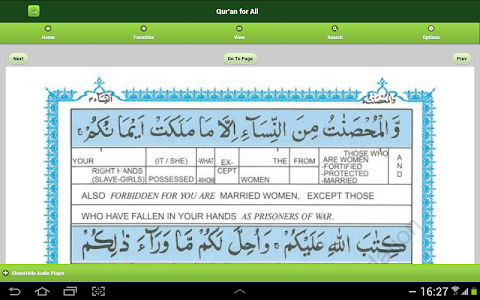 Qur'an for All
Home Favorites View Search Options
Next Go To Page Prev
النساء٤ والمحصنت٥
وَّالْمُحْصَنٰتُ مِنَ النِّسَآءِ اِلَّا مَا مَلَكَتْ اَيْمَانُكُمْ ۚ
YOUR (IT / SHE) -WHAT EX- THE FROM THOSE WHO A
RIGHT HANDS -WHOM CEPT WOMEN ARE WOMEN N
(SLAVE-GIRLS) POSSESSED -FORTIFIED D
-PROTECTED
-MARRIED
ALSO FORBIDDEN FOR YOU ARE MARRIED WOMEN, EXCEPT THOSE
WHO HAVE FALLEN IN YOUR HANDS AS PRISONERS OF WAR.
كِتٰبَ اللّٰهِ عَلَيْكُمْ ۚ وَاُحِلَّ لَكُمْ مَّا وَرَآءَ ذٰلِكُمْ
Show/Hide Audio Player
16:27